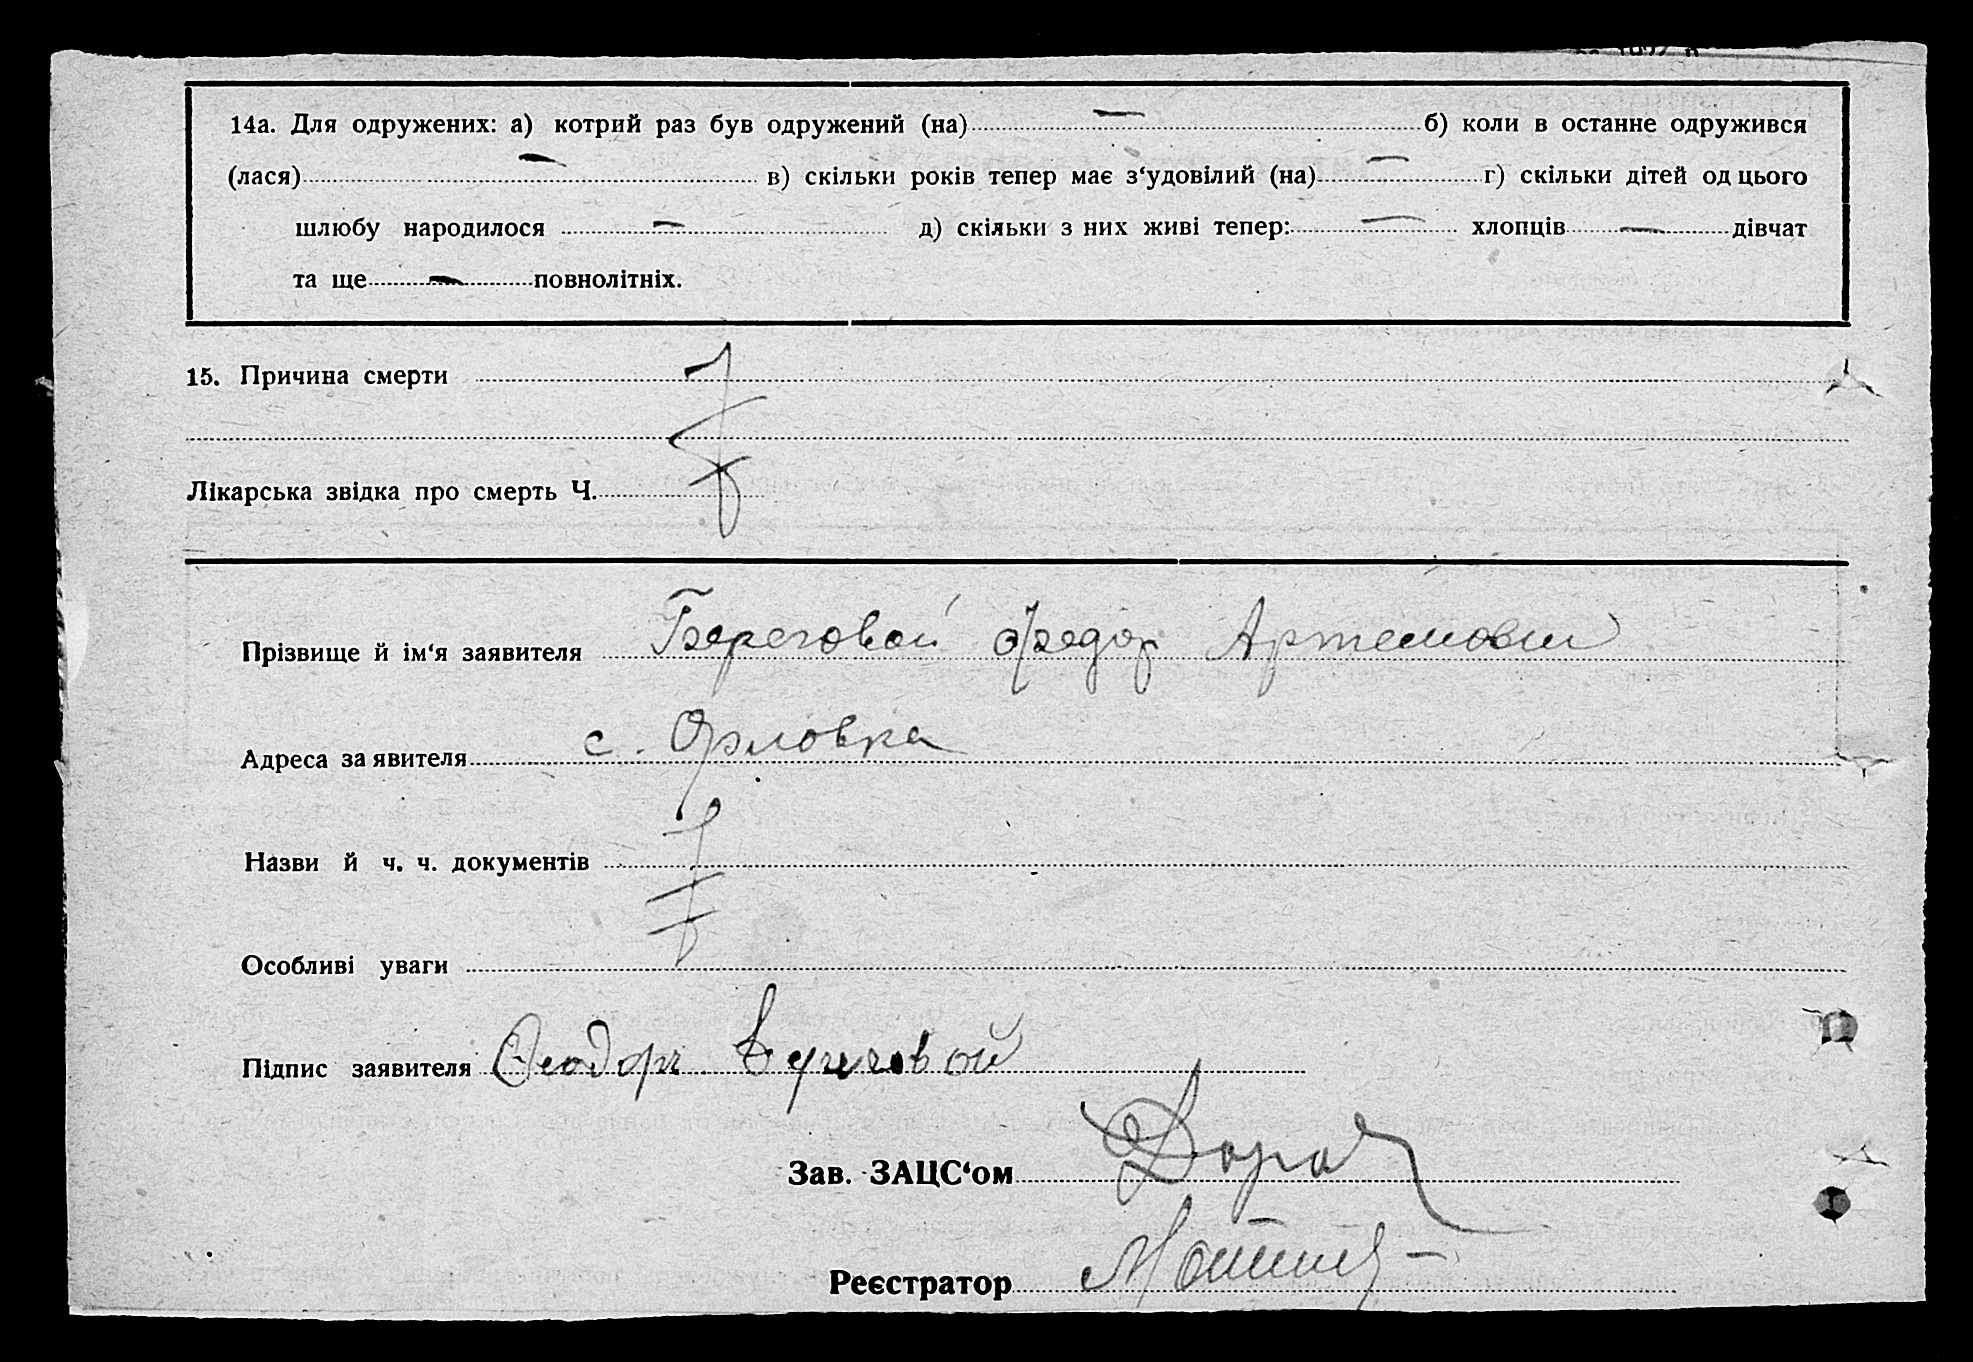 14а. Для одружених: а) котрий раз був одружений (на) — б) коли в останне одружився
(лася) — в) скільки років тепер має з‘удовілий (на) — г) скільки дітей од цього
шлюбу народилося — д) скільки з них живі тепер: — хлопців — дівчат
та ще — повнолітніх.
15. Причина смерти
Лікарська звідка про смерть Ч.
Прізвище й ім‘я заявителя Береговой Федор Артемович
Адреса заявителя с. Орловка
Назви й ч. ч. документів
Особливі уваги
Підпис заявителя Феодор
Зав. ЗАЦС‘ом
Реєстратор